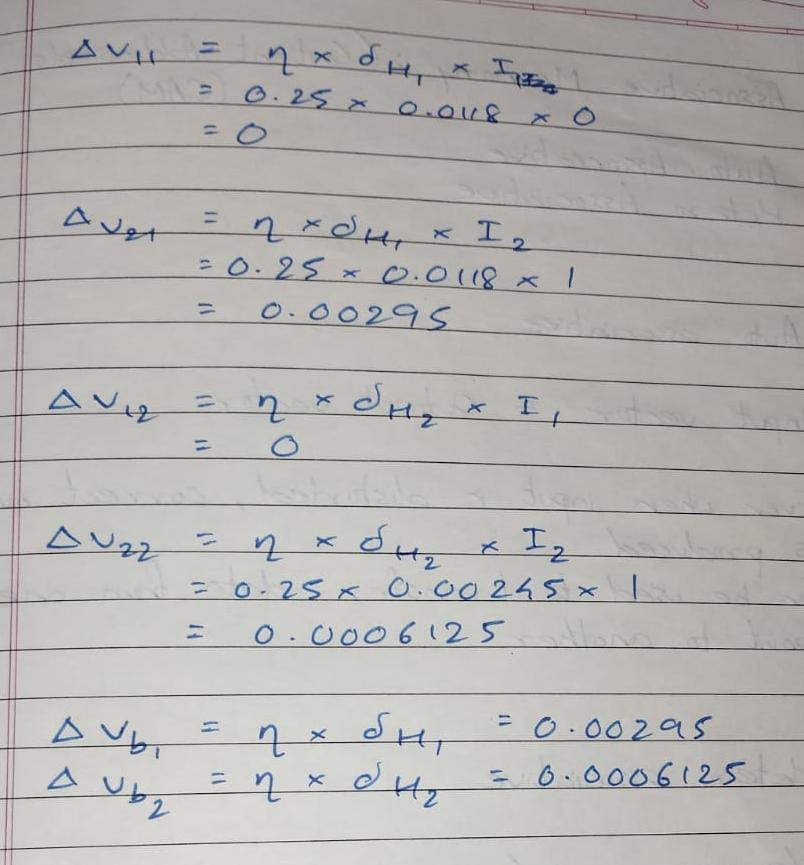 Δv₁₁ = η × δH₁ × I₁
= 0.25 × 0.0118 × 0
= 0
Δv₂₁ = η × δH₁ × I₂
= 0.25 × 0.0118 × 1
= 0.00295
Δv₁₂ = η × δH₂ × I₁
= 0
Δv₂₂ = η × δH₂ × I₂
= 0.25 × 0.00245 × 1
= 0.0006125
Δv_b₁ = η × δH₁ = 0.00295
Δv_b₂ = η × δH₂ = 0.0006125